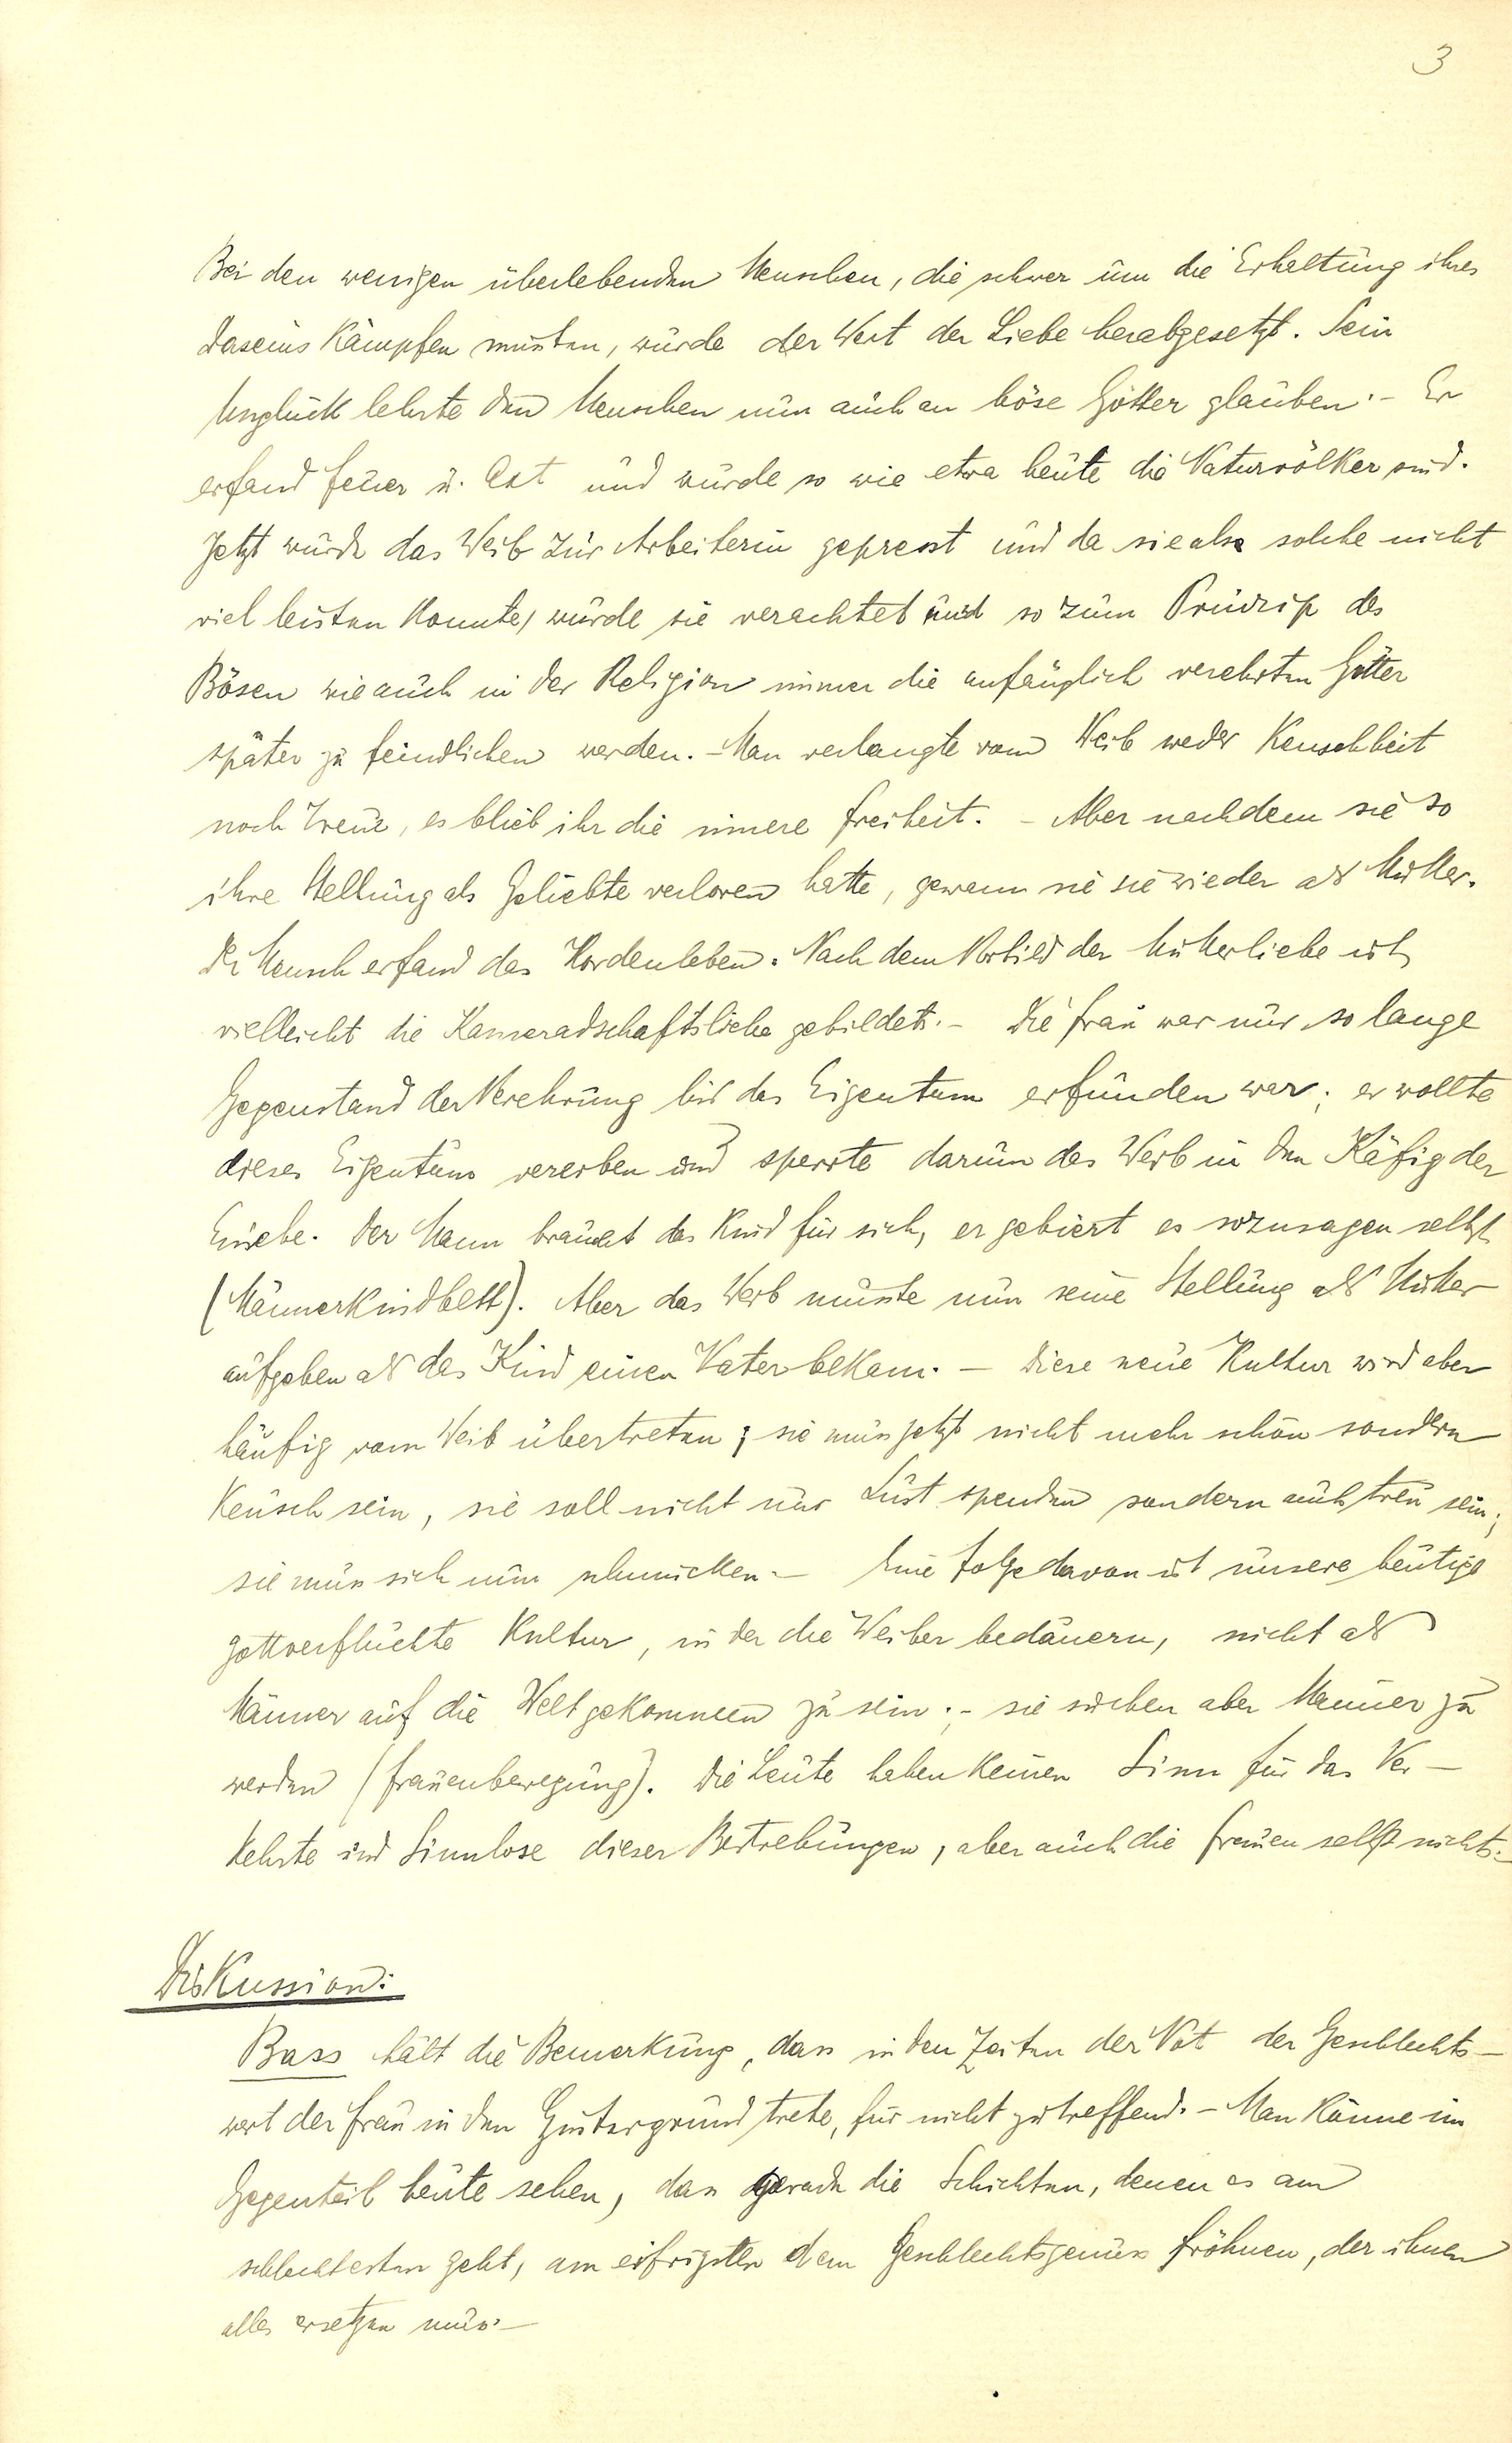 3
Bei den wenigen überlebenden Menschen, die schwer um die Erhaltung ihres
Daseins kämpfen mussten, wurde der Wert der Liebe herabgesetzt. Sein
Unglück lehrte den Menschen nun auch an böse Götter glauben. – Er
erfand Feuer u. Axt und wurde so wie etwa heute die Naturvölker sind.
Jetzt wurde das Weib zur Arbeiterin gepresst und da sie als solche nicht
viel leisten konnte, wurde sie verachtet und so zum Prinzip des
Bösen wie auch in der Religion immer die anfänglich verehrten Götter
später zu feindlichen werden. – Man verlangte vom Weib weder Keuschheit
noch Treue, es blieb ihr die innere Freiheit. – Aber nachdem sie so
ihre Stellung als Geliebte verloren hatte, gewann sie sie wieder als Mutter.
Der Mensch erfand das Hordenleben. Nach dem Vorbild der Mutterliebe ist
vielleicht die Kameradschaftsliebe gebildet. – Die Frau war nur so lange
Gegenstand der Verehrung bis das Eigentum erfunden war; er wollte
dieses Eigentum vererben und sperrte darum das Weib in den Käfig der
Einehe. Der Mann braucht das Kind für sich, er gebiert es sozusagen selbst
(Männerkindbett). Aber das Weib musste nun seine Stellung als Mutter
aufgeben als das Kind einen Vater bekam. – Diese neue Kultur wird aber
häufig vom Weib übertreten; sie muss jetzt nicht mehr schön sondern
keusch sein, sie soll nicht nur Lust spenden sondern auch treu sein;
sie muss sich nun schmücken. – Eine Folge davon ist unsere heutige
gottverfluchte Kultur, in der die Weiber bedauern, nicht als
Männer auf die Welt gekommen zu sein; – sie suchen aber Männer zu
werden (Frauenbewegung). Die Leute haben keinen Sinn für das Ver-
kehrte und Sinnlose dieser Bestrebungen, aber auch die Frauen selbst nicht. –
Diskussion:
Bass hält die Bemerkung, dass in den Zeiten der Not der Geschlechts-
wert der Frau in den Hintergrund trete, für nicht zutreffend. – Man könne im
Gegenteil heute sehen, dass gerade die Schichten, denen es am
schlechtesten geht, am eifrigsten dem Geschlechtsgenuss fröhnen, der ihnen
alles ersetzen muss. –